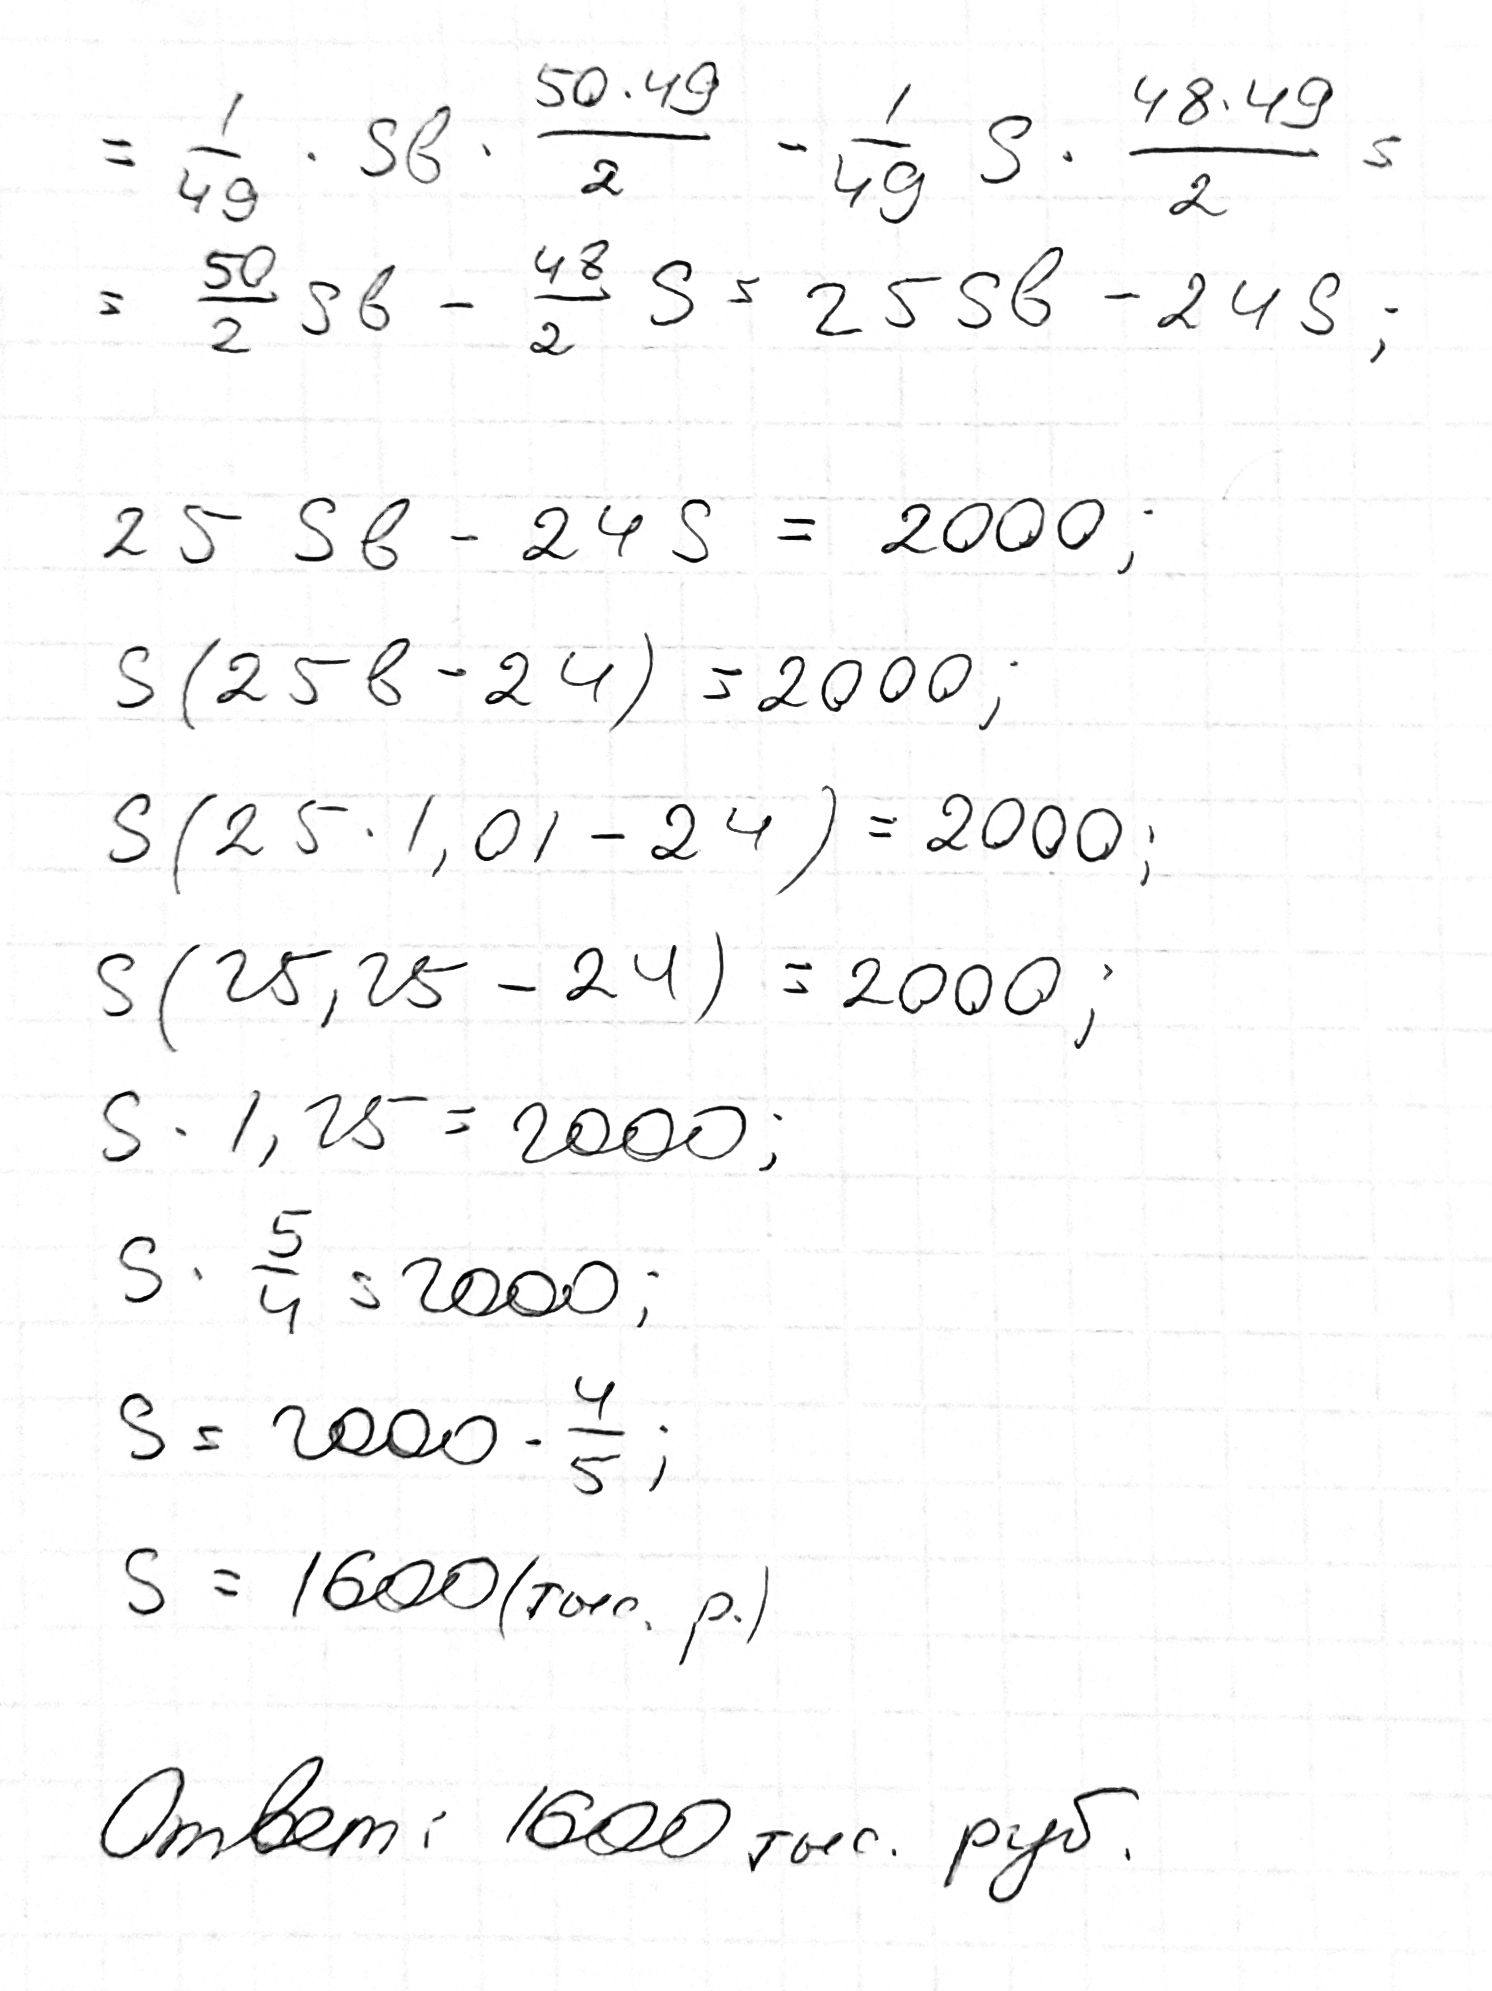 = 1/49 · Sв · 50·49/2 - 1/49 S · 48·49/2 =
= 50/2 Sв - 48/2 S = 25Sв - 24S;
25 Sв - 24S = 2000;
S(25в - 24) = 2000;
S(25·1,01 - 24) = 2000;
S(25,25 - 24) = 2000;
S · 1,25 = 2000;
S · 5/4 = 2000;
S = 2000 · 4/5;
S = 1600 (тыс. р.)
Ответ: 1600 тыс. руб.